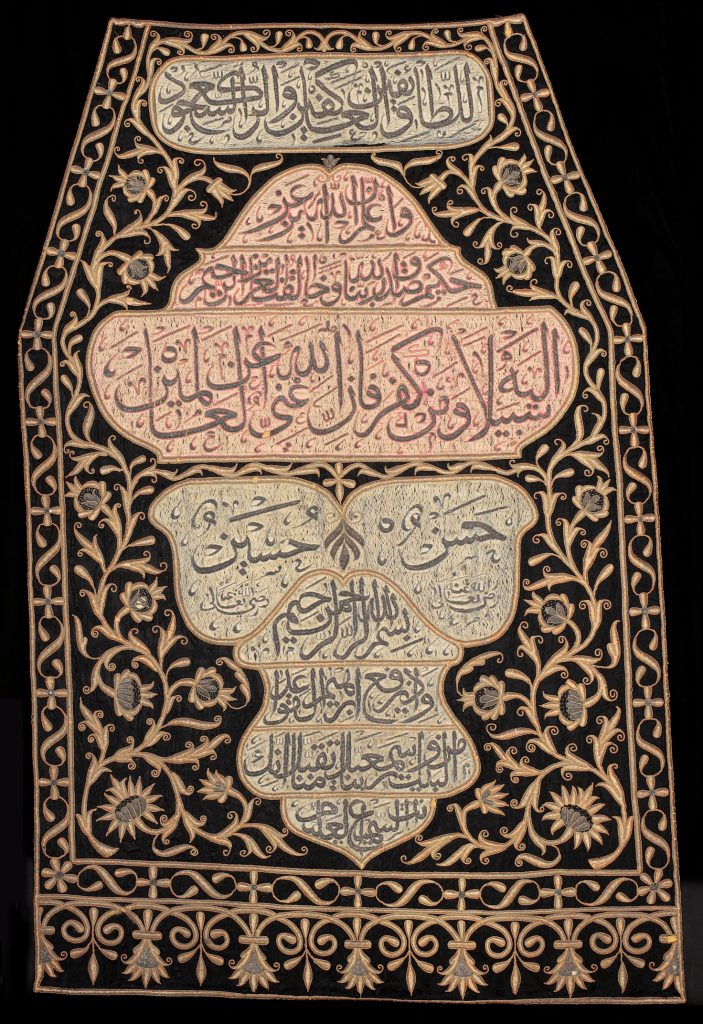 للطائفين والعاكفين والركع السجود
واعلم ان الله عزيز
حكيم صدق الله ربنا وخالقنا العزيز الرحيم
اليه سبيلا ومن كفر فان الله غني عن العالمين
حسن رضي الله تعالى عنه
حسين رضي الله تعالى عنه
بسم الله الرحمن الرحيم
واذ يرفع ابرهيم القواعد
من البيت واسمعيل ربنا تقبل منا انك
انت السميع العليم